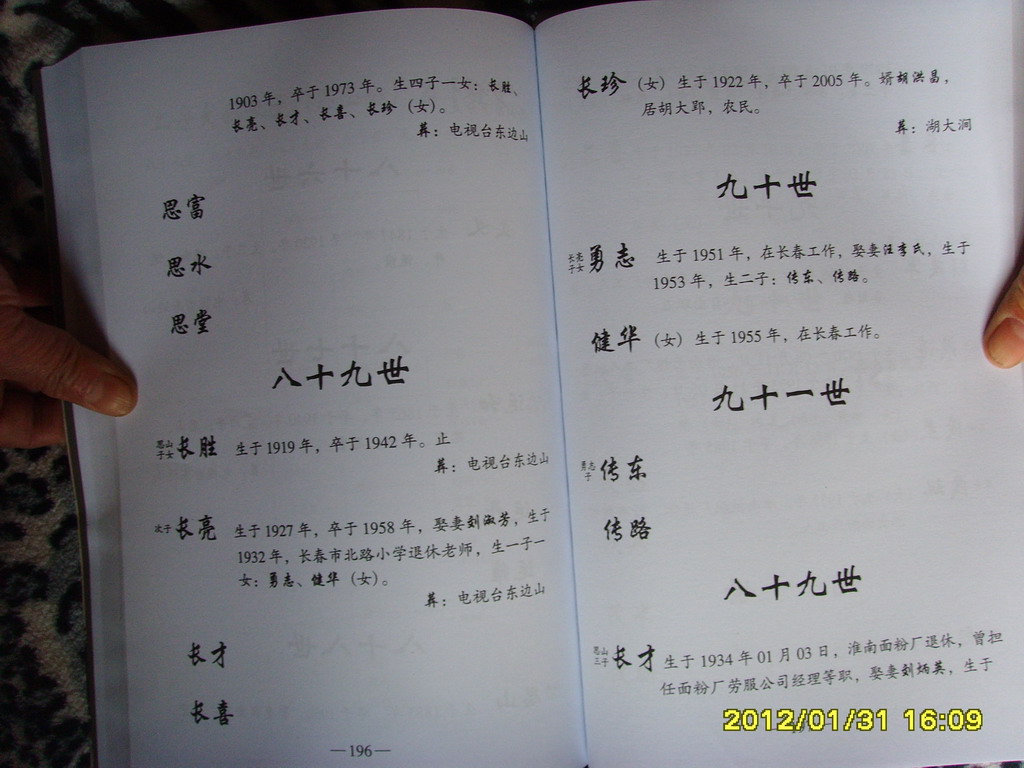 1903年，卒于1973年。生四子一女：长胜、
长亮、长才、长喜、长珍（女）。
葬：电视台东边山
思富
思水
思堂
八十九世
思山
子女 长胜 生于1919年，卒于1942年。止
葬：电视台东边山
次子 长亮 生于1927年，卒于1958年，娶妻刘淑芳，生于
1932年，长春市北路小学退休老师，生一子一
女：勇志、健华（女）。
葬：电视台东边山
长才
长喜
—196—
长珍（女）生于1922年，卒于2005年。婿胡洪昌，
居胡大郢，农民。
葬：湖大涧
九十世
长亮
子女 勇志 生于1951年，在长春工作，娶妻汪李氏，生于
1953年，生二子：传东、传路。
健华（女）生于1955年，在长春工作。
九十一世
勇志
子 传东
传路
八十九世
思山
三子 长才 生于1934年01月03日，淮南面粉厂退休，曾担
任面粉厂劳服公司经理等职，娶妻刘炳英，生于
2012/01/31 16:09